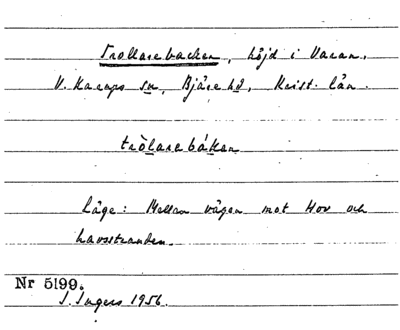 Trollarebacken, höjd i Varan,
V. Karups sn, Bjäre hd, Krist. län.
tròlarebákan
Läge: Mellan vägen mot Hov och
havsstranden.
Nr 5199.
I. Ingers 1956.